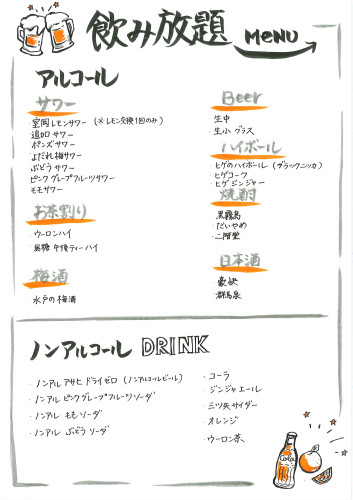 飲み放題 MENU
アルコール
サワー
・室岡レモンサワー (※レモン交換1回のみ)
・追加サワー
・ポンズサワー
・よだれ梅サワー
・ぶどうサワー
・ピンクグレープフルーツサワー
・モモサワー
お茶割り
・ウーロンハイ
・無糖 午後ティーハイ
梅酒
・水戸の梅酒
Beer
・生中
・生小グラス
ハイボール
・ヒゲのハイボール (ブラックニッカ)
・ヒゲコーク
・ヒゲジンジャー
焼酎
・黒霧島
・だいやめ
・二階堂
日本酒
・豪快
・群馬泉
ノンアルコール DRINK
・ノンアル アサヒドライゼロ (ノンアルコールビール)
・ノンアル ピンクグレープフルーツソーダ
・ノンアル ももソーダ
・ノンアル ぶどうソーダ
・コーラ
・ジンジャエール
・三ツ矢サイダー
・オレンジ
・ウーロン茶